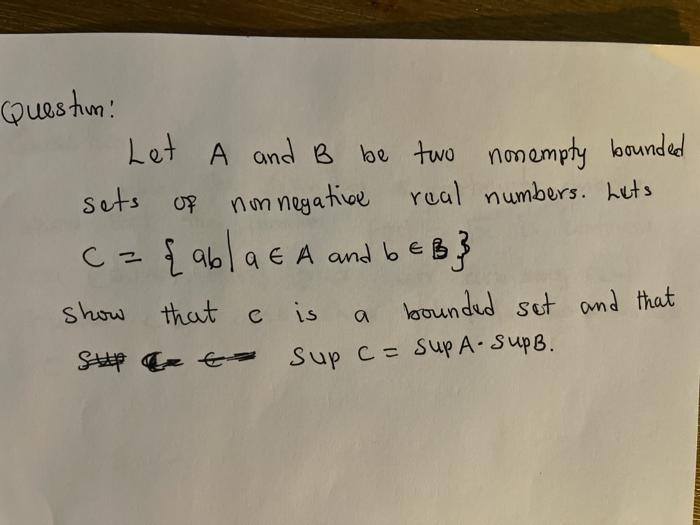 Question:
Let A and B be two nonempty bounded
sets of nonnegative real numbers. Lets
C = { ab | a ∈ A and b ∈ B }
show that c is a bounded set and that
Sup C = Sup A · Sup B.